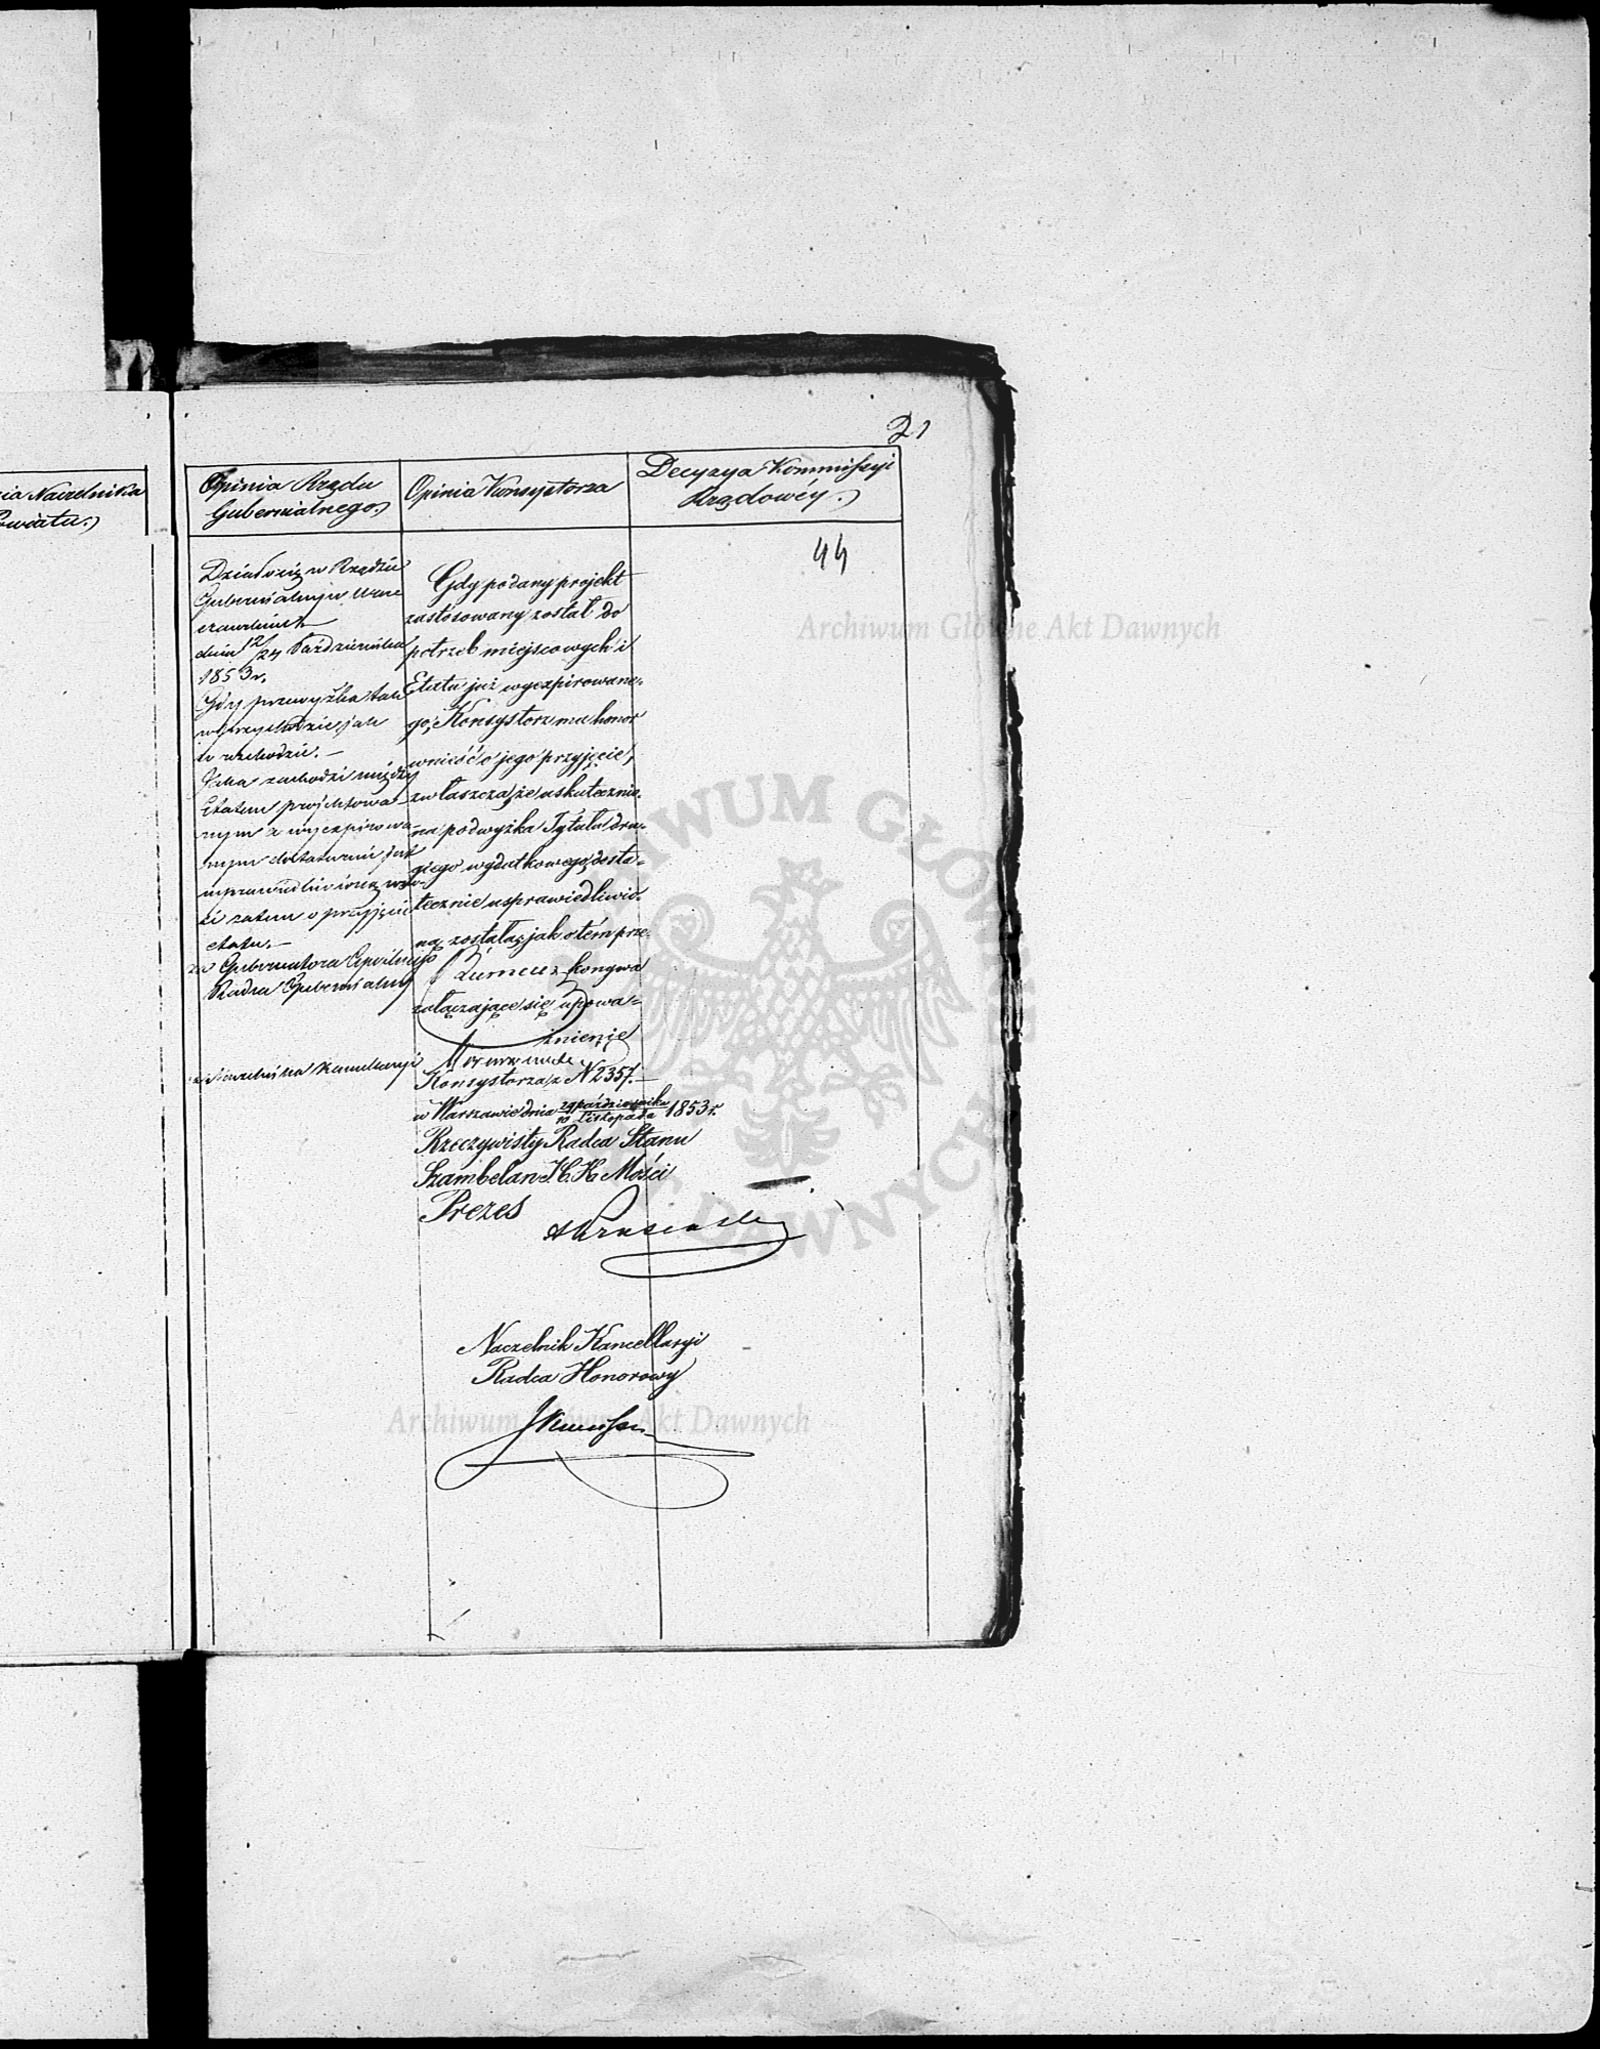 21
Naczelnika
Powiatu.
Opinia Rządu
Gubernialnego.
Opinia Konsystorza
Decyzya Kommissyi
Rządowéy.
44
Działo się w Rządzie
Gubernialnym War
szawskim
dnia 12/24 Października
1853 r.
Gdy przewyżka tak
w przychodzie, jak
w rozchodzie. —
Jaka zachodzi między
Etatem projektowa-
nym a wyexpirowa-
nym dostatecznie jest
usprawiedliwioną, wno-
si zatem o przyjęcie
etatu. —
za Gubernatora Cywilnego
Radca Gubernialny
za Naczelnika Kancellaryi
Gdy podany projekt
zastosowany został do
potrzeb miejscowych i
Etatu już wyexpirowane-
go, Konsystorz ma honor
wnieść o jego przyjęcie,
zwłaszcza, że uskutecznio-
na podwyżka Tytułu dru-
giego wydatkowego, dosta-
tecznie usprawiedliwio-
ną została, jak o tém prze-
konywa
załączające się upowa-
żnienie
Konsystorza z N 2357. —
w Warszawie dnia 29 Października / 10 Listopada 1853 r.
Rzeczywisty Radca Stanu
Szambelan J. C. K. Mości
Prezes
Naczelnik Kancellaryi
Radca Honorowy
Archiwum Główne Akt Dawnych
ARCHIWUM GŁÓWNE AKT DAWNYCH
Archiwum Główne Akt Dawnych